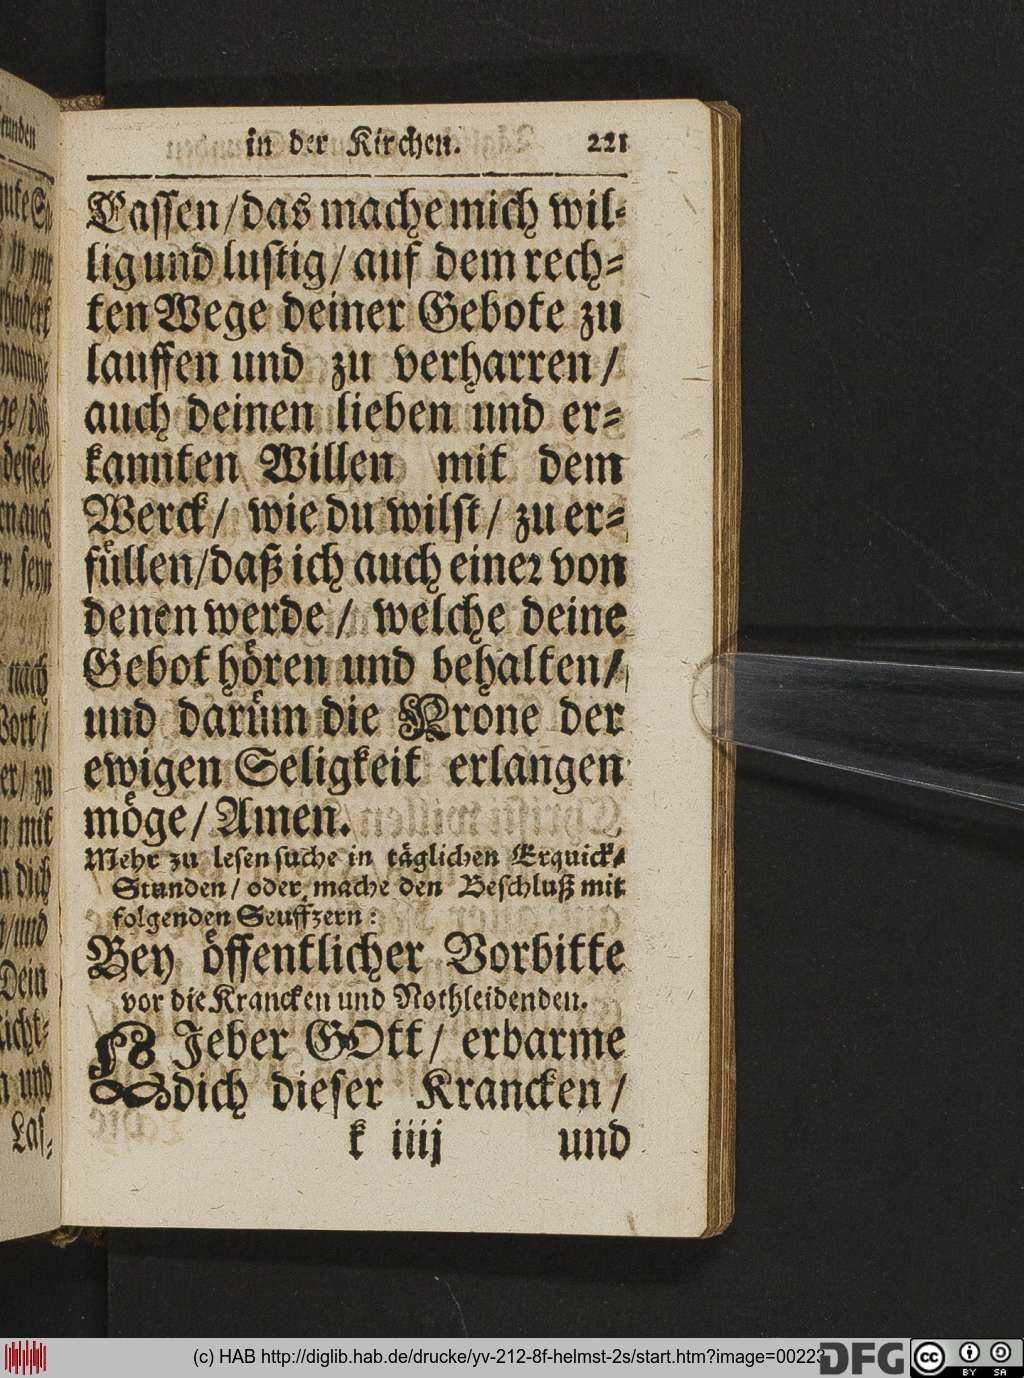 in der Kirchen. 221
Lassen / das mache mich wil-
lig und lustig / auf dem rech-
ten Wege deiner Gebote zu
lauffen und zu verharren /
auch deinen lieben und er-
kannten Willen mit dem
Werck / wie du wilst / zu er-
füllen / daß ich auch einer von
denen werde / welche deine
Gebot hören und behalten /
und darüm die Krone der
ewigen Seligkeit erlangen
möge / Amen.
Mehr zu lesen suche in täglichen Erquick-
Stunden / oder mache den Beschluß mit
folgenden Seuffzern:
Bey öffentlicher Vorbitte
vor die Krancken und Nothleidenden.
LIeber GOtt / erbarme
dich dieser Krancken /
k iiij und
nach
Dein
und
Las-
(c) HAB http://diglib.hab.de/drucke/yv-212-8f-helmst-2s/start.htm?image=00223
DFG
cc
BY SA